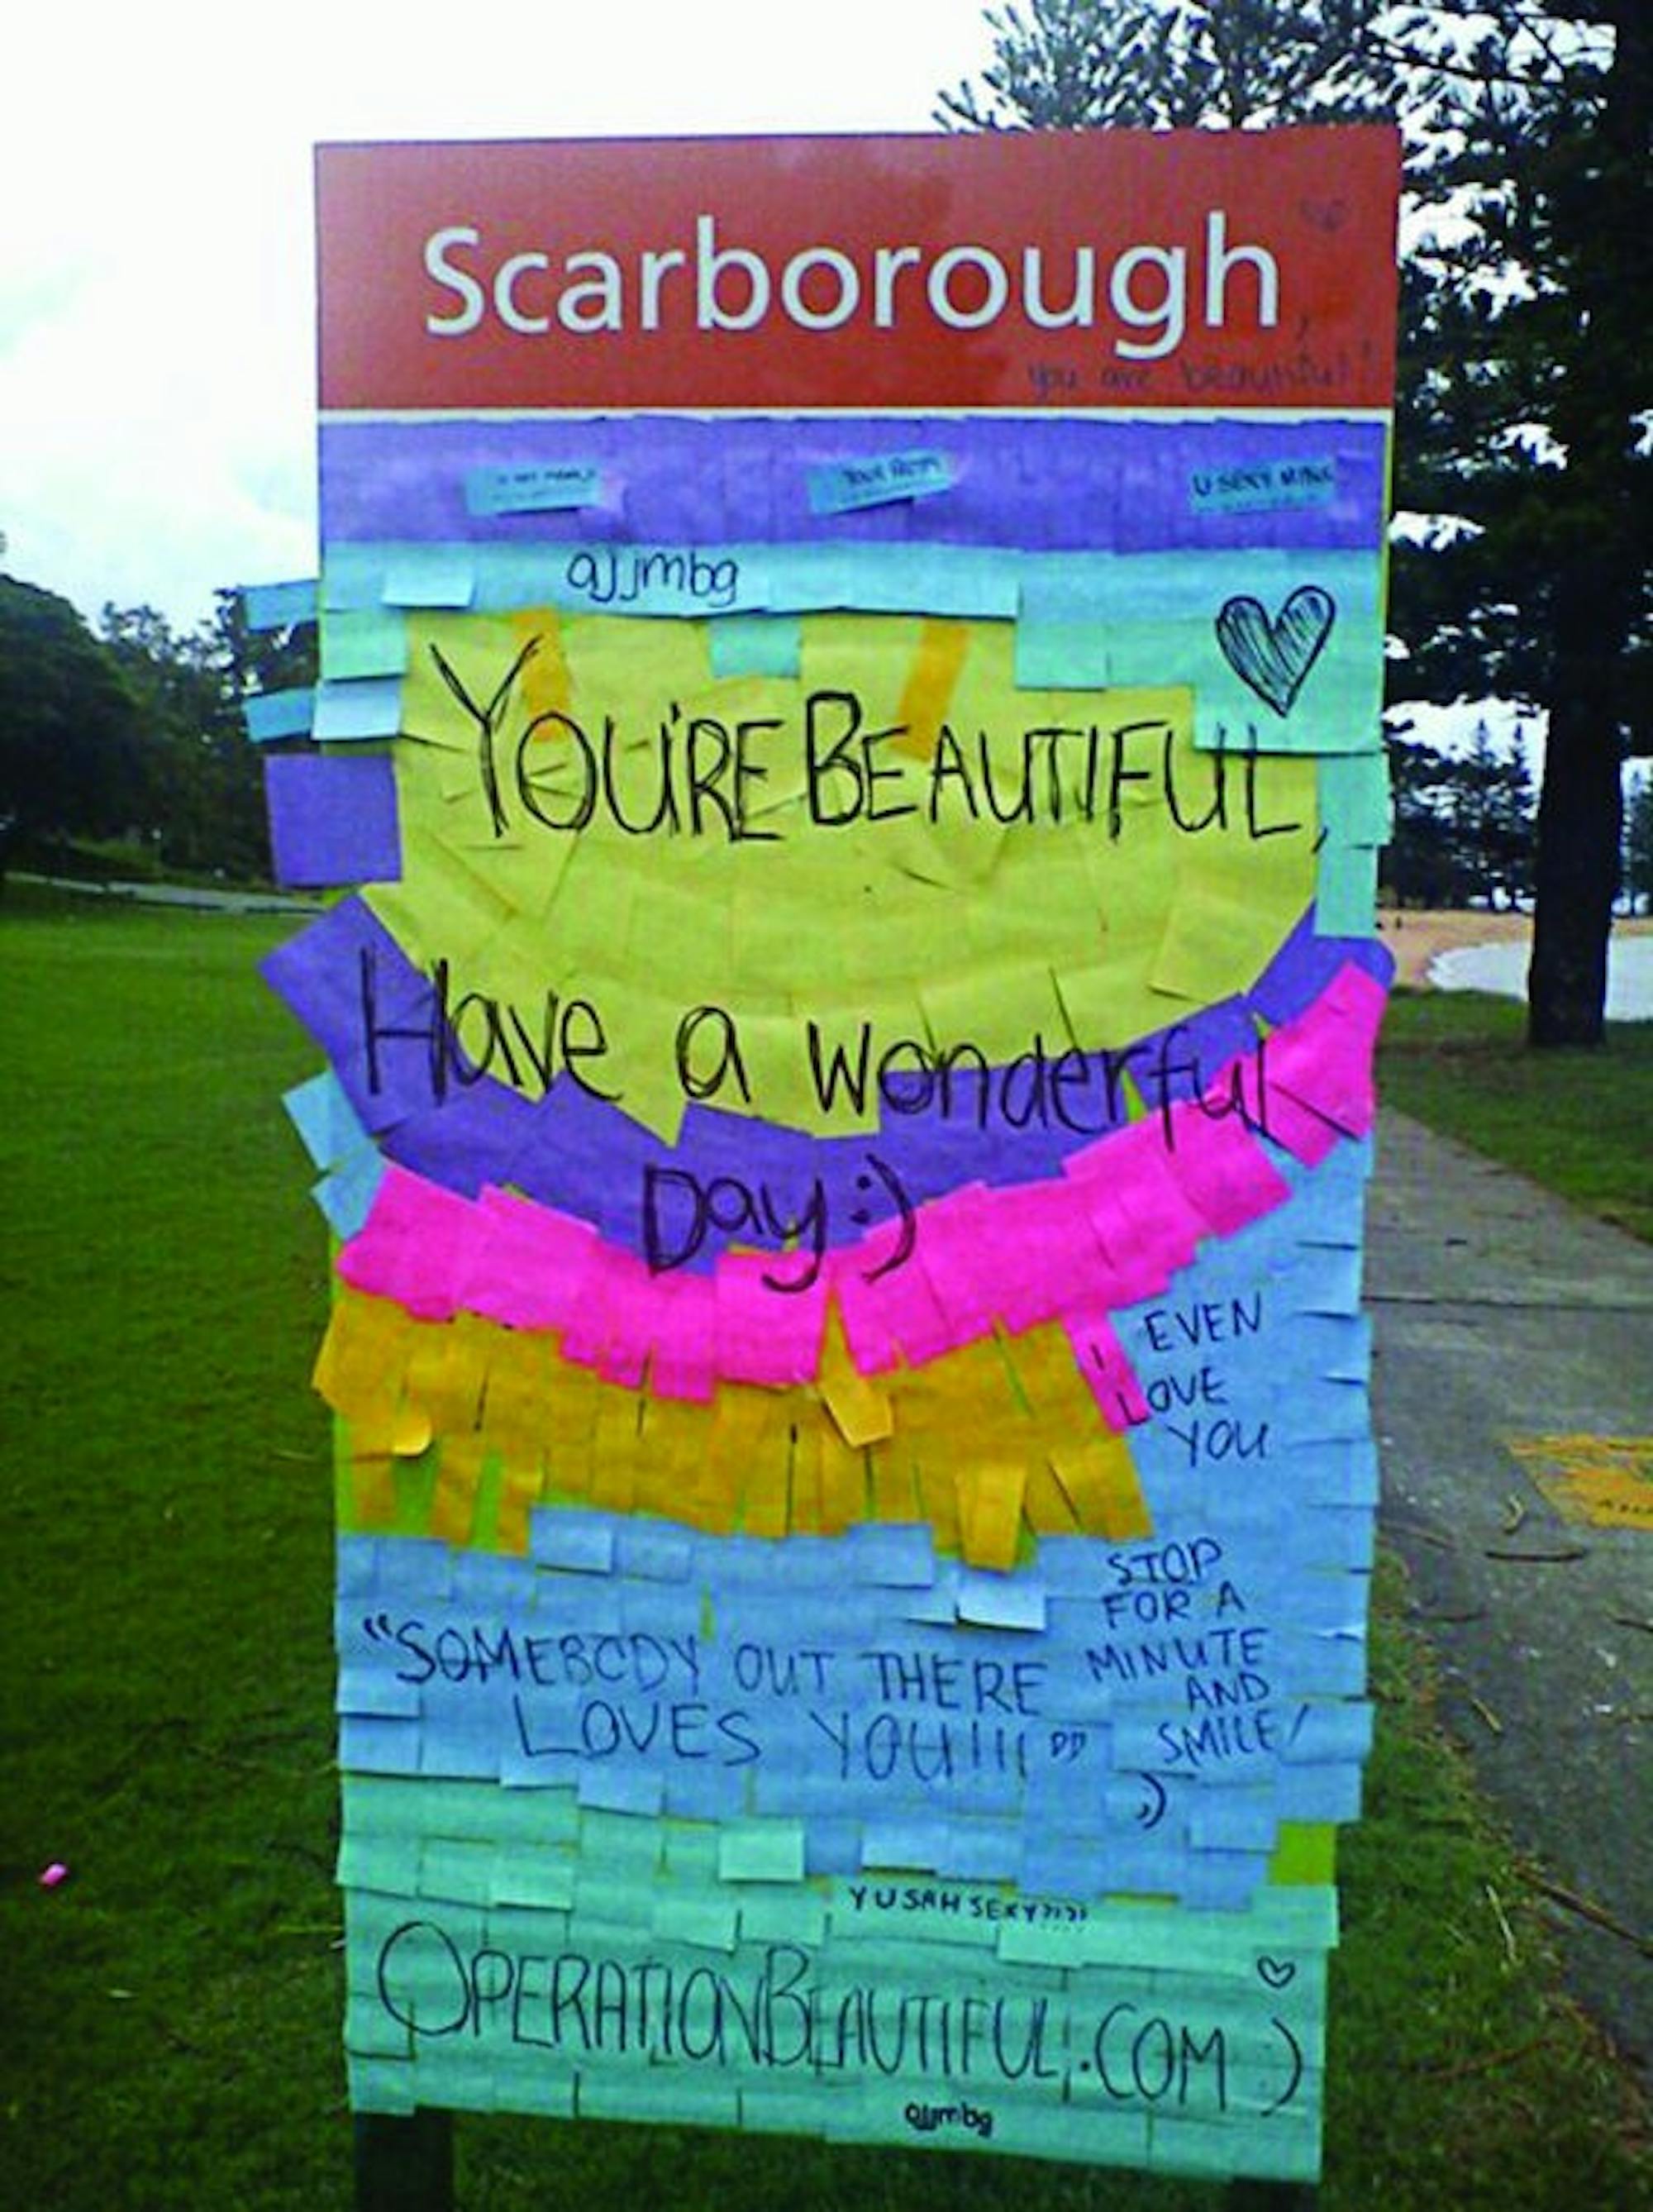 Scarborough,
you are beautiful!
U SEXY MINX
ajjmbg
YOU'RE BEAUTIFUL,
Have a wonderful
Day :)
I EVEN
LOVE
YOU
STOP
FOR A
MINUTE
AND
SMILE!
;)
"SOMEBODY OUT THERE
LOVES YOU!!!"
Y U SAH SEXY?!?!
OPERATIONBEAUTIFUL.COM :)
ajjmbg